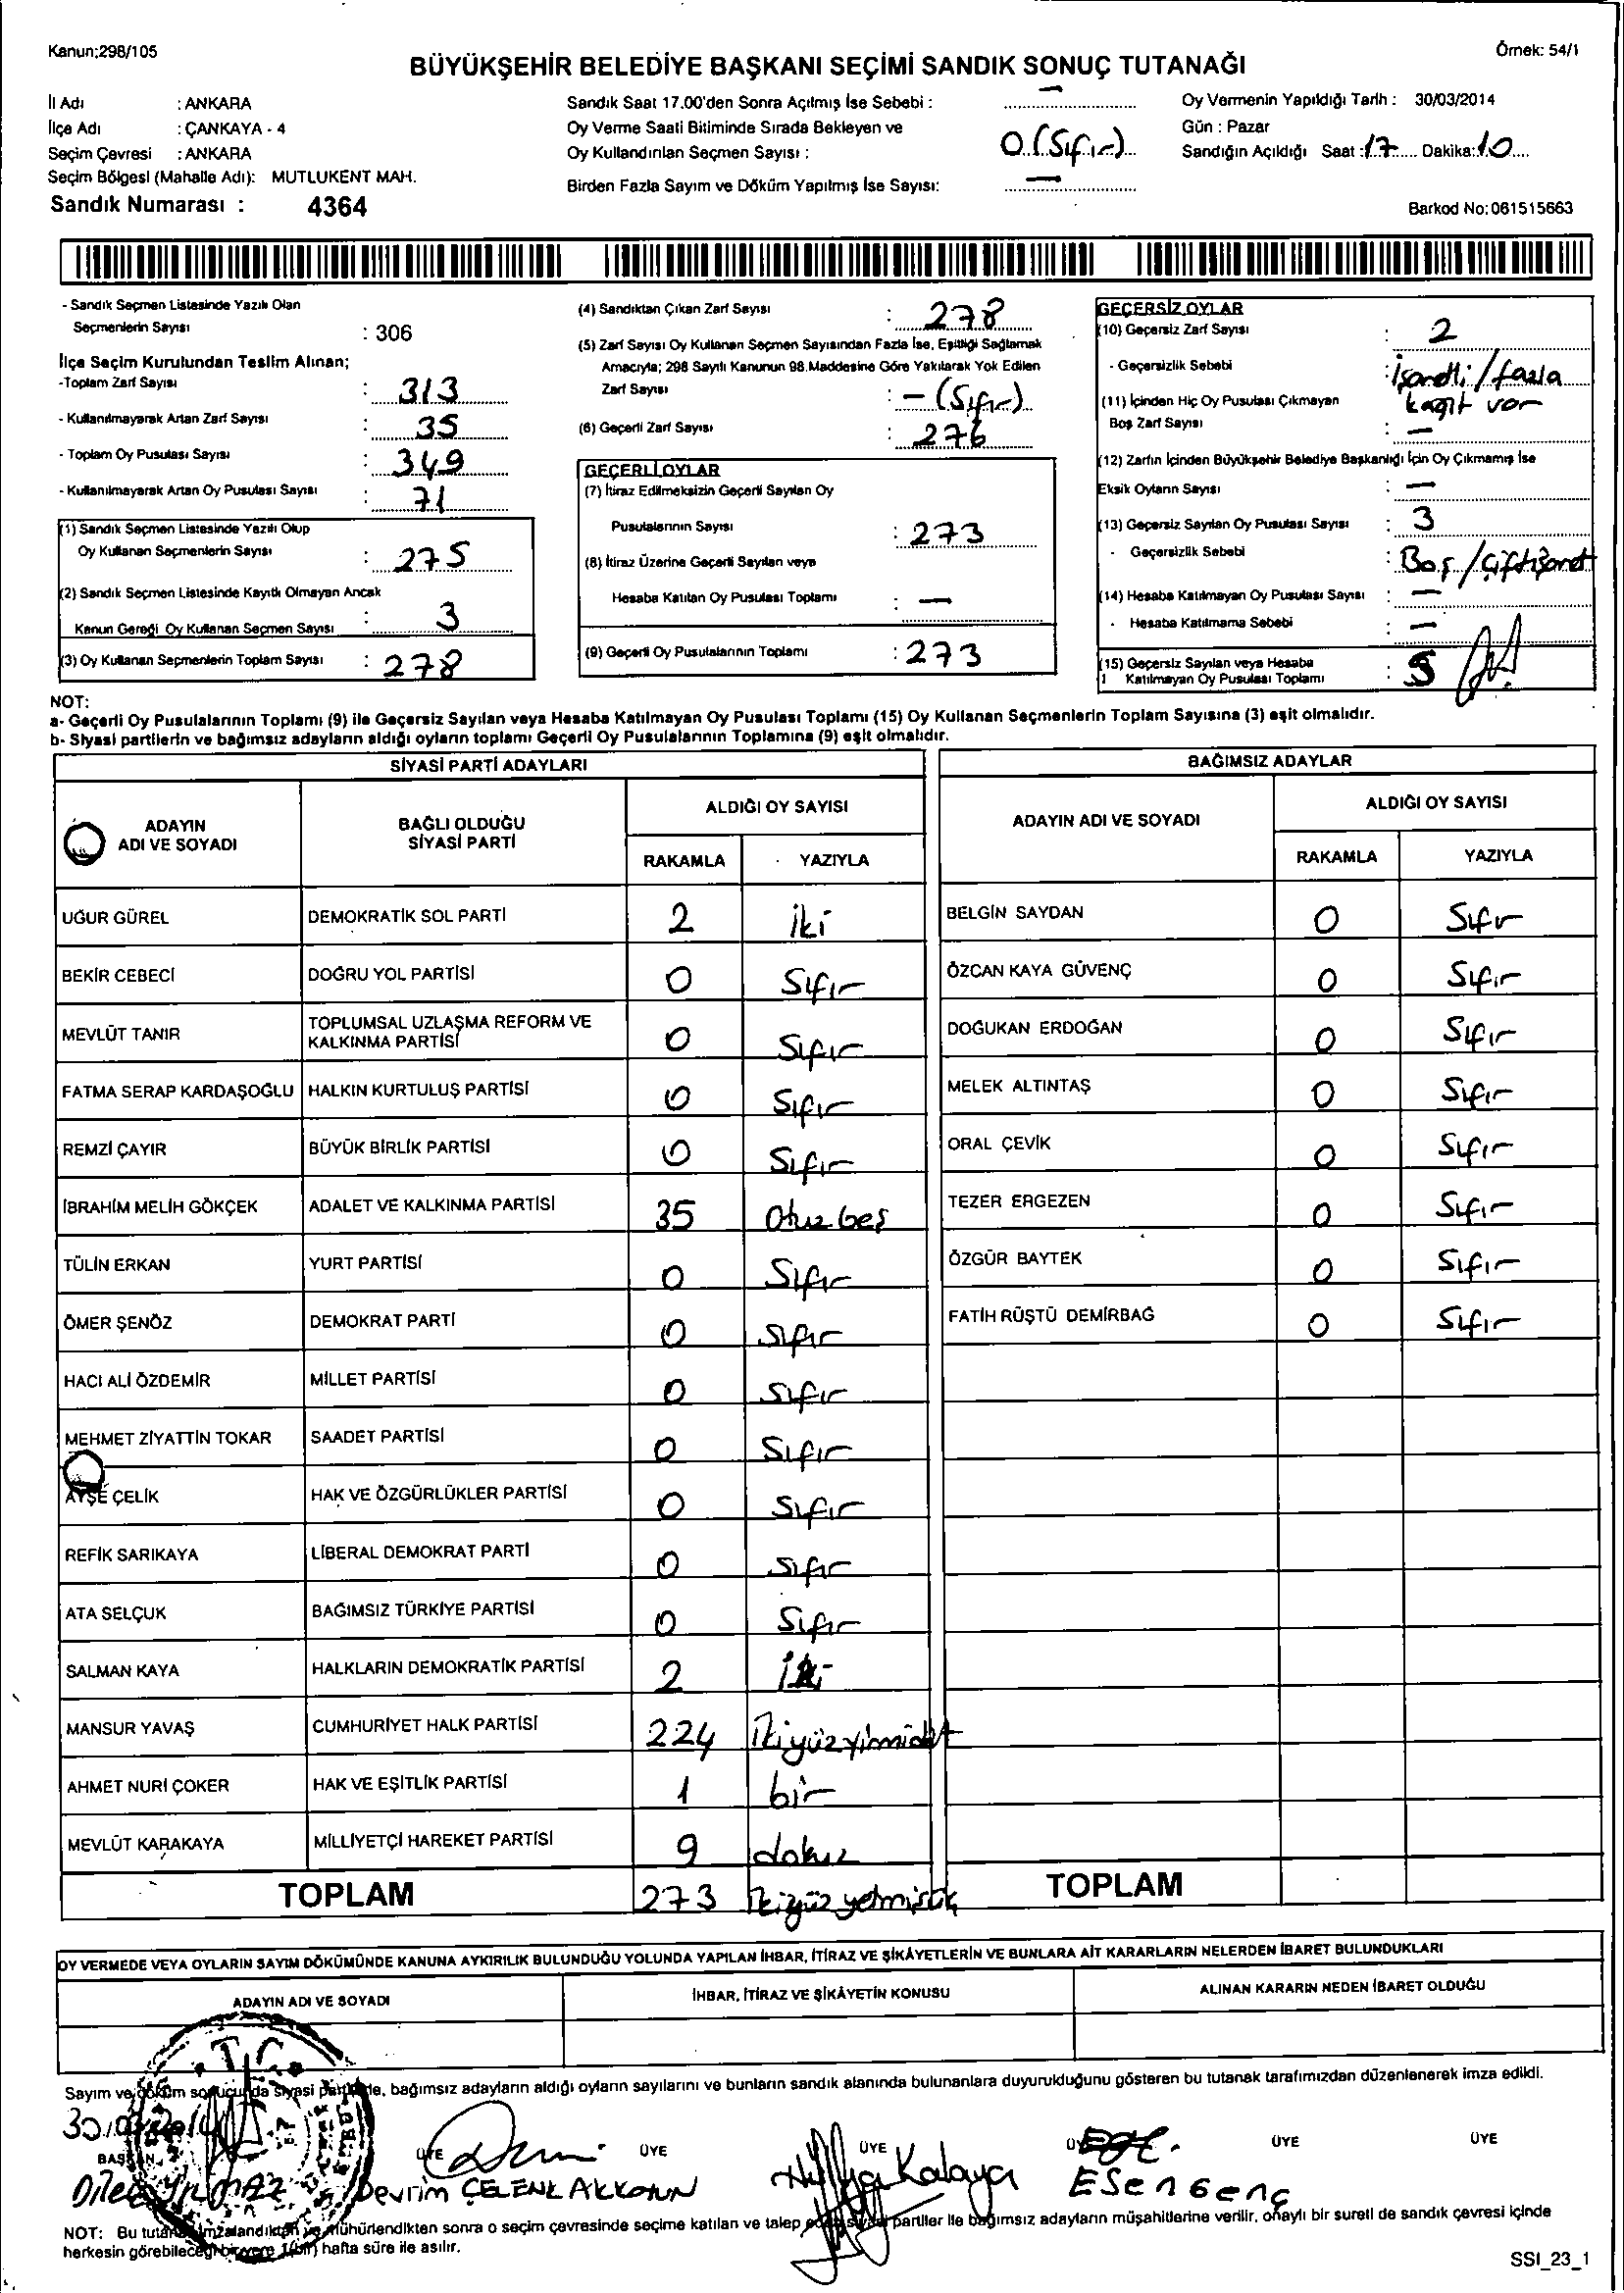 Kanun;298/105
Örnek: 54/1
BÜYÜKŞEHİR BELEDİYE BAŞKANI SEÇİMİ SANDIK SONUÇ TUTANAĞI
İl Adı : ANKARA
İlçe Adı : ÇANKAYA - 4
Seçim Çevresi : ANKARA
Seçim Bölgesi (Mahalle Adı): MUTLUKENT MAH.
Sandık Numarası : 4364
Sandık Saat 17.00'den Sonra Açılmış İse Sebebi : –
Oy Verme Saati Bitiminde Sırada Bekleyen ve
Oy Kullandırılan Seçmen Sayısı : 0 (Sıfır)
Birden Fazla Sayım ve Döküm Yapılmış İse Sayısı: –
Oy Vermenin Yapıldığı Tarih : 30/03/2014
Gün : Pazar
Sandığın Açıldığı Saat : 17 Dakika: 10
Barkod No: 061515663
- Sandık Seçmen Listesinde Yazılı Olan
Seçmenlerin Sayısı : 306
İlçe Seçim Kurulundan Teslim Alınan;
-Toplam Zarf Sayısı : 313
- Kullanılmayarak Artan Zarf Sayısı : 35
- Toplam Oy Pusulası Sayısı : 349
- Kullanılmayarak Artan Oy Pusulası Sayısı : 71
(1) Sandık Seçmen Listesinde Yazılı Olup
Oy Kullanan Seçmenlerin Sayısı : 275
(2) Sandık Seçmen Listesinde Kayıtlı Olmayan Ancak
Kanun Gereği Oy Kullanan Seçmen Sayısı : 3
(3) Oy Kullanan Seçmenlerin Toplam Sayısı : 278
(4) Sandıktan Çıkan Zarf Sayısı : 278
(5) Zarf Sayısı Oy Kullanan Seçmen Sayısından Fazla İse, Eşitliği Sağlamak
Amacıyla; 298 Sayılı Kanunun 98.Maddesine Göre Yakılarak Yok Edilen
Zarf Sayısı : – (Sıfır)
(6) Geçerli Zarf Sayısı : 276
GEÇERLİ OYLAR
(7) İtiraz Edilmeksizin Geçerli Sayılan Oy
Pusulalarının Sayısı : 273
(8) İtiraz Üzerine Geçerli Sayılan veya
Hesaba Katılan Oy Pusulası Toplamı : –
(9) Geçerli Oy Pusulalarının Toplamı : 273
GEÇERSİZ OYLAR
(10) Geçersiz Zarf Sayısı : 2
- Geçersizlik Sebebi : İşaretli / fazla
kağıt var
(11) İçinden Hiç Oy Pusulası Çıkmayan
Boş Zarf Sayısı : –
(12) Zarfın İçinden Büyükşehir Belediye Başkanlığı İçin Oy Çıkmamış İse
Eksik Oyların Sayısı : –
(13) Geçersiz Sayılan Oy Pusulası Sayısı : 3
- Geçersizlik Sebebi : Boş / Çift işaret
(14) Hesaba Katılmayan Oy Pusulası Sayısı : –
- Hesaba Katılmama Sebebi : –
(15) Geçersiz Sayılan veya Hesaba
Katılmayan Oy Pusulası Toplamı : 5
NOT:
a- Geçerli Oy Pusulalarının Toplamı (9) ile Geçersiz Sayılan veya Hesaba Katılmayan Oy Pusulası Toplamı (15) Oy Kullanan Seçmenlerin Toplam Sayısına (3) eşit olmalıdır.
b- Siyasi partilerin ve bağımsız adayların aldığı oyların toplamı Geçerli Oy Pusulalarının Toplamına (9) eşit olmalıdır.
SİYASİ PARTİ ADAYLARI
ADAYIN ADI VE SOYADI
BAĞLI OLDUĞU SİYASİ PARTİ
ALDIĞI OY SAYISI
RAKAMLA YAZIYLA
UĞUR GÜREL DEMOKRATİK SOL PARTİ 2 iki
BEKİR CEBECİ DOĞRU YOL PARTİSİ 0 Sıfır
MEVLÜT TANIR TOPLUMSAL UZLAŞMA REFORM VE KALKINMA PARTİSİ 0 Sıfır
FATMA SERAP KARDAŞOĞLU HALKIN KURTULUŞ PARTİSİ 0 Sıfır
REMZİ ÇAYIR BÜYÜK BİRLİK PARTİSİ 0 Sıfır
İBRAHİM MELİH GÖKÇEK ADALET VE KALKINMA PARTİSİ 35 Otuz beş
TÜLİN ERKAN YURT PARTİSİ 0 Sıfır
ÖMER ŞENÖZ DEMOKRAT PARTİ 0 Sıfır
HACI ALİ ÖZDEMİR MİLLET PARTİSİ 0 Sıfır
MEHMET ZİYATTİN TOKAR SAADET PARTİSİ 0 Sıfır
AYŞE ÇELİK HAK VE ÖZGÜRLÜKLER PARTİSİ 0 Sıfır
REFİK SARIKAYA LİBERAL DEMOKRAT PARTİ 0 Sıfır
ATA SELÇUK BAĞIMSIZ TÜRKİYE PARTİSİ 0 Sıfır
SALMAN KAYA HALKLARIN DEMOKRATİK PARTİSİ 2 İki
MANSUR YAVAŞ CUMHURİYET HALK PARTİSİ 224 İkiyüzyirmidört
AHMET NURİ ÇOKER HAK VE EŞİTLİK PARTİSİ 1 bir
MEVLÜT KARAKAYA MİLLİYETÇİ HAREKET PARTİSİ 9 dokuz
TOPLAM 273 İkiyüz yetmişüç
BAĞIMSIZ ADAYLAR
ADAYIN ADI VE SOYADI
ALDIĞI OY SAYISI
RAKAMLA YAZIYLA
BELGİN SAYDAN 0 Sıfır
ÖZCAN KAYA GÜVENÇ 0 Sıfır
DOĞUKAN ERDOĞAN 0 Sıfır
MELEK ALTINTAŞ 0 Sıfır
ORAL ÇEVİK 0 Sıfır
TEZER ERGEZEN 0 Sıfır
ÖZGÜR BAYTEK 0 Sıfır
FATİH RÜŞTÜ DEMİRBAĞ 0 Sıfır
TOPLAM
OY VERMEDE VEYA OYLARIN SAYIM DÖKÜMÜNDE KANUNA AYKIRILIK BULUNDUĞU YOLUNDA YAPILAN İHBAR, İTİRAZ VE ŞİKÂYETLERİN VE BUNLARA AİT KARARLARIN NELERDEN İBARET BULUNDUKLARI
ADAYIN ADI VE SOYADI
İHBAR, İTİRAZ VE ŞİKÂYETİN KONUSU
ALINAN KARARIN NEDEN İBARET OLDUĞU
Sayım ve döküm sonucunda siyasi partilerle, bağımsız adayların aldığı oyların sayılarını ve bunların sandık alanında bulunanlara duyurulduğunu gösteren bu tutanak tarafımızdan düzenlenerek imza edildi.
30/03/2014
BAŞKAN ÜYE ÜYE ÜYE ÜYE ÜYE ÜYE
Dilek Yılmaz Devrim ÇELENK AKKOYUN Hülya Kalaycı Esen Genç
NOT: Bu tutanak imzalandıktan ve mühürlendikten sonra o seçim çevresinde seçime katılan ve talep eden siyasi partiler ile bağımsız adayların müşahitlerine verilir, onaylı bir sureti de sandık çevresi içinde
herkesin görebileceği bir yere 1(bir) hafta süre ile asılır.
SSI_23_1